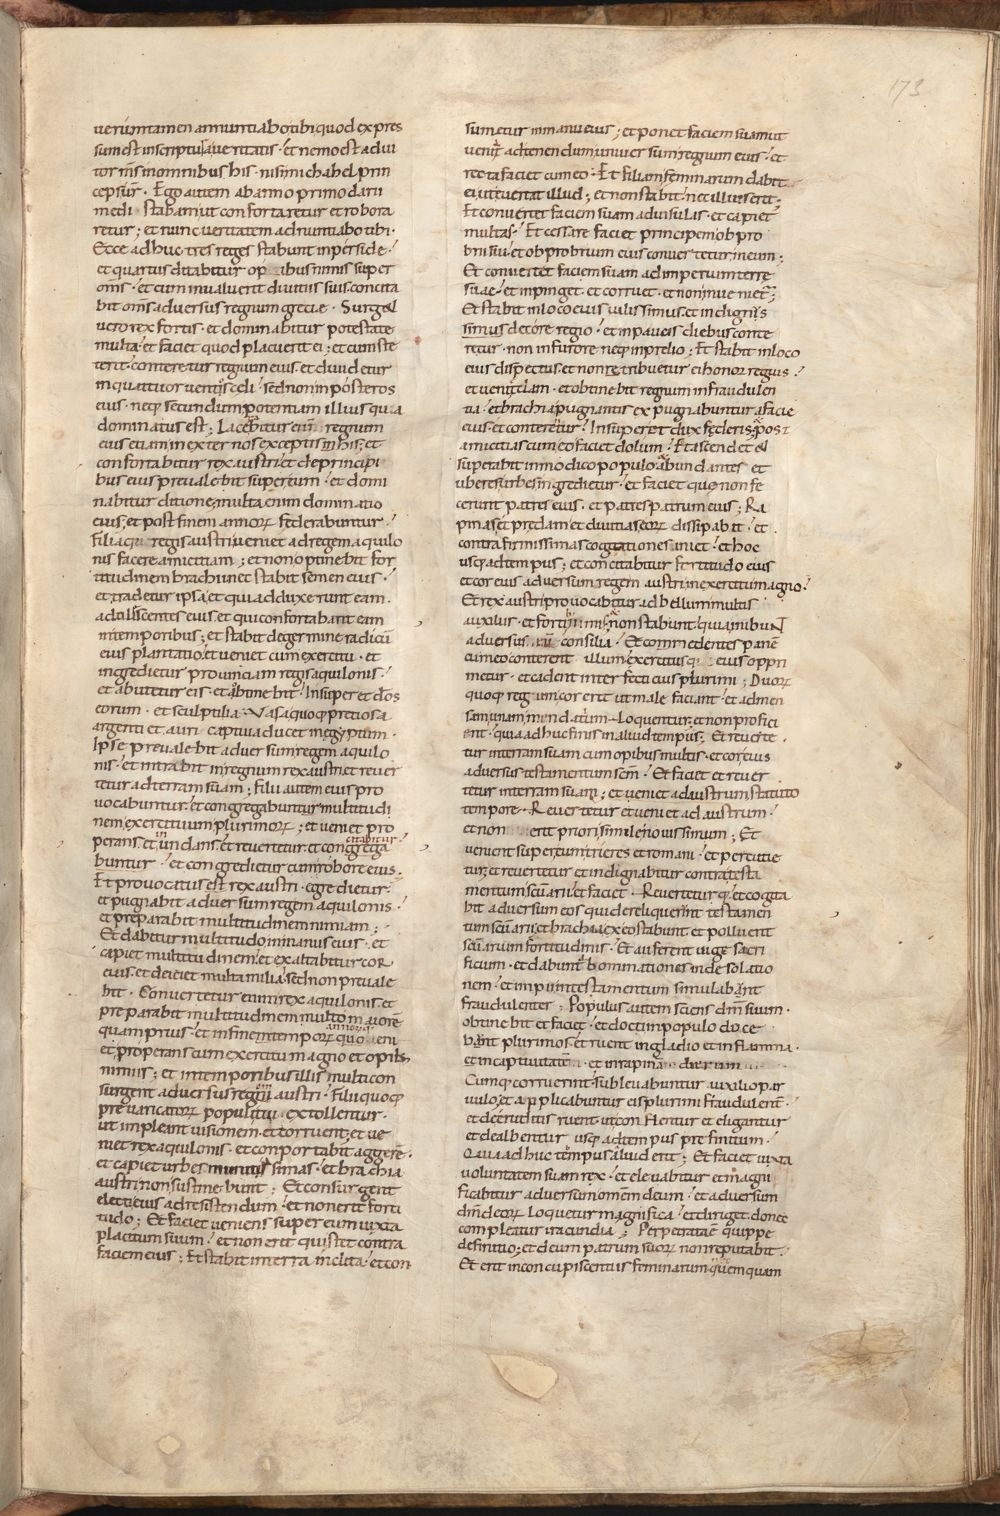 173
ueruntamen annuntiabo tibi quod expres
sum est inscriptura ueritatis · et nemo est adiu
tor meus in omnibus his · nisi michahel prin
ceps ur̄ · Ego autem ab anno primo darii
medi · stabam ut confortaretur et robora
retur ; et nunc ueritatem adnuntiabo tibi ·
Ecce adhuc tres reges stabunt in perside ·
et quartus ditabitur opibus nimis super
om̄s · et cum inualuerit diuitiis suis concita
bit om̄s aduersus regnum grecie · Surget
uero rex fortis · et dominabitur potestate
multa · et faciet quod placuerit ei ; et cum ste
terit · conteretur regnum eius · et diuidetur
in quattuor uentos celi · sed non in posteros
eius · neq; secundum potentiam illius qua
dominatus est ; Lacerabitur enī regnum
eius etiam in exteros exceptis his ; et
confortabitur rex austri · et de principi
bus eius preualebit super eum · et domi
nabitur ditione · multa enim dominatio
eius ; et post finem annoꝝ federabuntur ·
filiaq; regis austri ueniet ad regem aquilo
nis facere amicitiam ; et non optinebit for
titudinem brachii nec stabit semen eius ·
et tradetur ipsa et qui adduxerunt eam ·
adoliscentes eius · et qui confortabant eam
in temporibus ; et stabit de germine radicū
eius plantatio · et ueniet cum exercitu · et
ingredietur prouinciam regis aquilonis ·
et abutetur eis · et obtinebit · Insuper et deos
eorum · et sculptilia · Vasa quoq; pretiosa
argenti et auri captiua ducet in egyptum ·
Ipse preualebit aduersum regem aquilo
nis · et intrabit in regnum rex austri · et reuer
tetur ad terram suam ; filii autem eius pro
uocabuntur · et congregabuntur multitudi
nem exercituum plurimoꝝ ; et ueniet pro
perans · et inundans · et reuertetur · et concitabitur
· et congredietur cum robore eius ·
Et prouocatus est rex austri · egredietur ·
et pugnabit aduersum regem aquilonis ·
et preparabit multitudinem nimiam ;
Et dabitur multitudo in manus eius · et
capiet multitudinem · et exaltabitur cor
eius · et deiciet multa milia · sed non preuale
bit · Conuertetur enim rex aquilonis · et
preparabit multitudinem multo maiorē
quam prius · et in fine temporꝝ annorūq; ueni
et properans cum exercitu magno et opib;
nimiis ; et in temporibus illis multi con
surgent aduersus regem austri · Filii quoq;
preuaricatoꝝ populi tui · extollentur ·
ut impleant uisionem · et corruent · et ue
niet rex aquilonis · et conportabit aggerē ·
et capiet urbes munitissimas · et brachia
austri non sustinebunt ; Et consurgent
electi eius ad resistendum · et non erit forti
tudo ; Et faciet ueniens super eum iuxta
placitum suum · et non erit qui stet contra
faciem eius ; Et stabit in terra inclita · et con
sumetur in manu eius ; et ponet faciem suam ut
ueniat ad tenendum uniuersum regnum eius · et
recta faciet cum eo · Et filiam feminarum dabit
ei ut euertat illud ; et non stabit · nec illius erit ·
Et conuertet faciem suam ad insulas · et capiet
multas · Et cessare faciet principem obpro
brii sui · et obprobrium eius conuertetur in eum ;
Et conuertet faciem suam ad imperium terre
suae · et inpinget · et corruet · et non inuenietᷣ ;
Et stabit in loco eius uilissimus · et indignis
simus decore regio · et in paucis diebus conte
retur · non in furore neq; in prelio ; Et stabit in loco
eius dispectus · et non retribuetur ei honor regius ·
et ueniet clam · et obtinebit regnum in fraudulen
tia · et brachia pugnantis expugnabuntur a facie
eius · et conteretur · Insuper et dux federis · et post
amicitias cum eo faciet dolum · Et ascendet et
superabit in modico populo · abundantes et
uberes urbes ingredietur · et faciet que non fe
cerunt patres eius · et patres patrum eius ; Ra
pinas et predam et diuitias eoꝝ dissipabit · et
contra firmissimas cogitationes iniet · et hoc
usq; ad tempus ; et concitabitur fortitudo eius
et cor eius aduersum regem austri in exercitu magno ·
Et rex austri prouocabitur ad bellum multis
auxiliis · et fortibus nimis · et non stabunt · quia inibunt
aduersus eum consilia · Et comedentes panē
cum eo conterent illum · exercitusq; eius oppri
metur · et cadent interfecti eius plurimi ; Duorꝝ
quoq; regum cor erit ut malefaciant · et ad men
sam unam mendatium loquentur · et non profici
ent · quia adhuc finis in aliud tempus ; Et reuerte
tur in terram suam cum opibus multis · et cor eius
aduersus testamentum scm̄ · Et faciet et reuer
tetur in terram suam ; et ueniet ad austrum statuto
tempore · Reuertetur et ueniet ad austrum ·
et non erit priori simile nouissimum ; Et
uenient super eum trieres et romani · et percutie
tur · et reuertetur et indignabitur contra testa
mentum scuarii et faciet · Reuerteturq; et cogita
bit aduersum eos qui dereliquerunt testamen
tum scuarii · et brachia ex eo stabunt et polluent
scuarium fortitudinis · Et auferent iuge sacri
ficium · et dabunt abominationes in desolatio
nem · et impii in testamentum simulabunt
fraudulenter ; Populus autem sciens dm̄ suum ·
obtinebit et faciet · et docti in populo doce
bunt plurimos · et ruent in gladio et in flamma ·
et in captiuitatē · et in rapina dierum
Cumq; corruerint subleuabuntur auxilio par
uulo · et applicabuntur eis plurimi fraudulentᷣ ·
et de eruditis ruent · ut conflentur et eligantur
et dealbentur usq; ad tempus prefinitum ·
Quia adhuc tempus aliud erit ; Et faciet iuxta
uoluntatem suam rex · et eleuabitur et magni
ficabitur aduersum omnem deum · et aduersum
dm̄ deoꝝ loquetur magnifica · et diriget · donec
compleatur iracundia ; Perpetrata ē quippe
definitio ; et deum patrum suoꝝ non reputabit ·
Et erit in concupiscentiis feminarum · quem quam